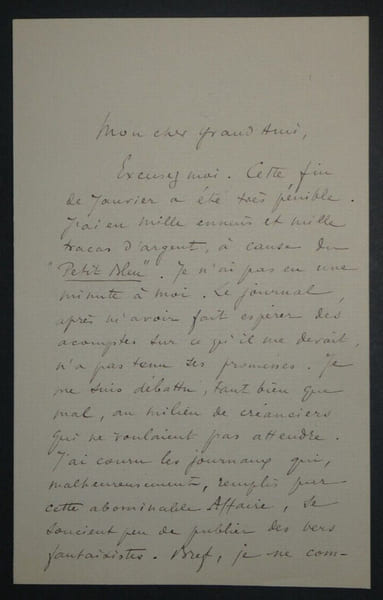 Mon cher grand Ami,
Excusez moi. Cette fin
de Janvier a été très pénible.
J'ai eu mille ennuis et mille
tracas d'argent, à cause du
"Petit Bleu". Je n'ai pas eu une
minute à moi. Le journal,
après m'avoir fait espérer des
acomptes sur ce qu'il me devait,
n'a pas tenu ses promesses. Je
me suis débattu, tant bien que
mal, au milieu de créanciers
qui ne voulaient pas attendre.
J'ai couru les journaux qui,
malheureusement, remplis par
cette abominable Affaire, se
soucient peu de publier des vers
fantaisistes. Bref, je ne com-